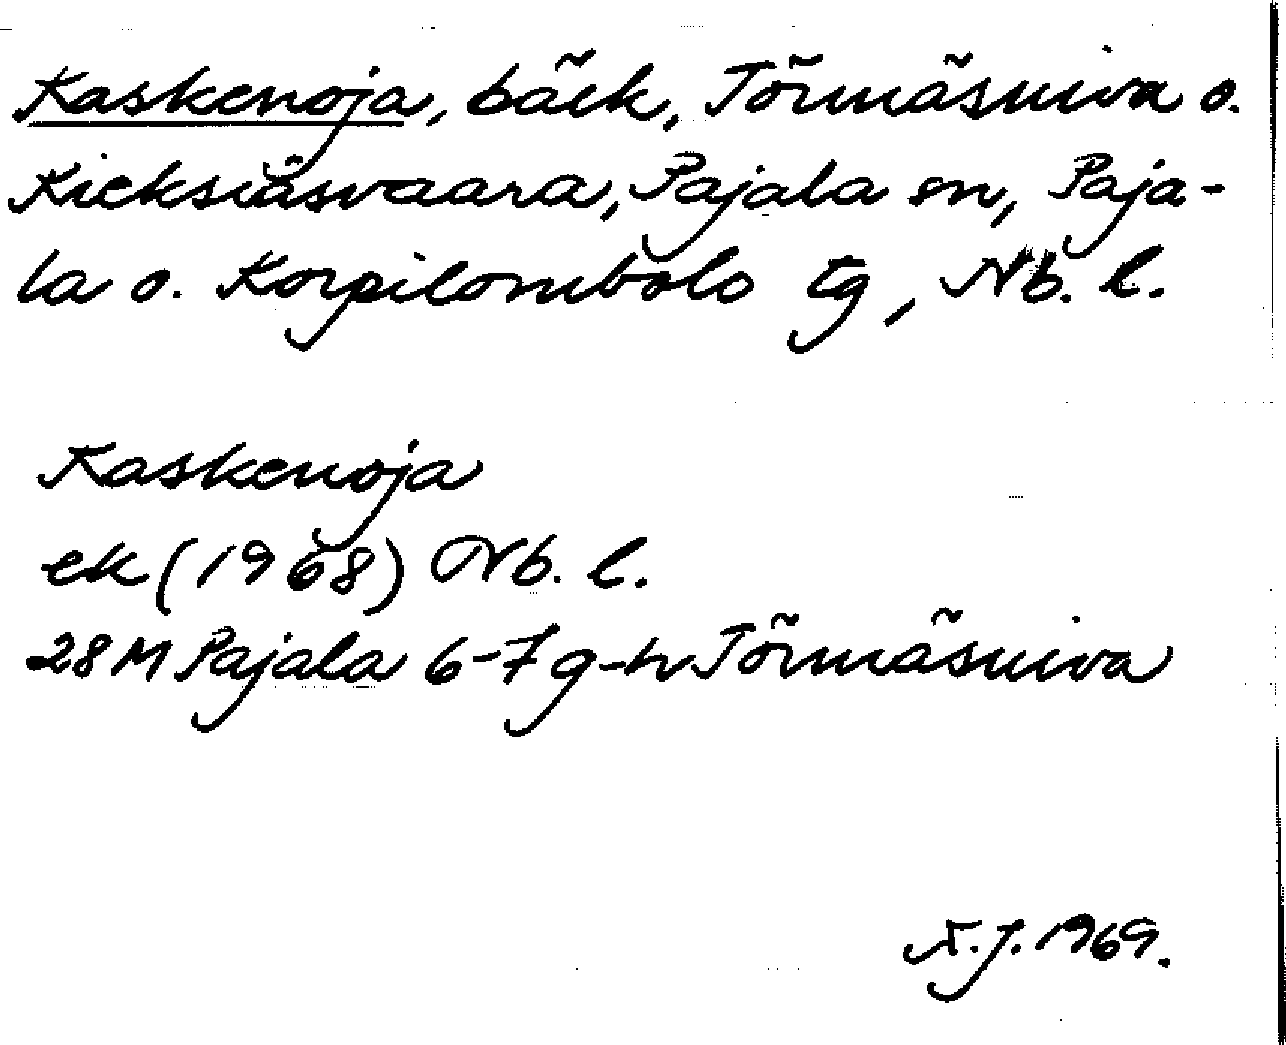 Kaskenoja, bäck, Törmäsniva o.
Kieksiäsvaara, Pajala sn, Paja-
la o. Korpilombolo tg, Nb. l.
Kaskenoja
ek (1968) Nb. l.
28 M Pajala 6-7 g-h Törmäsniva
K.J. 1969.